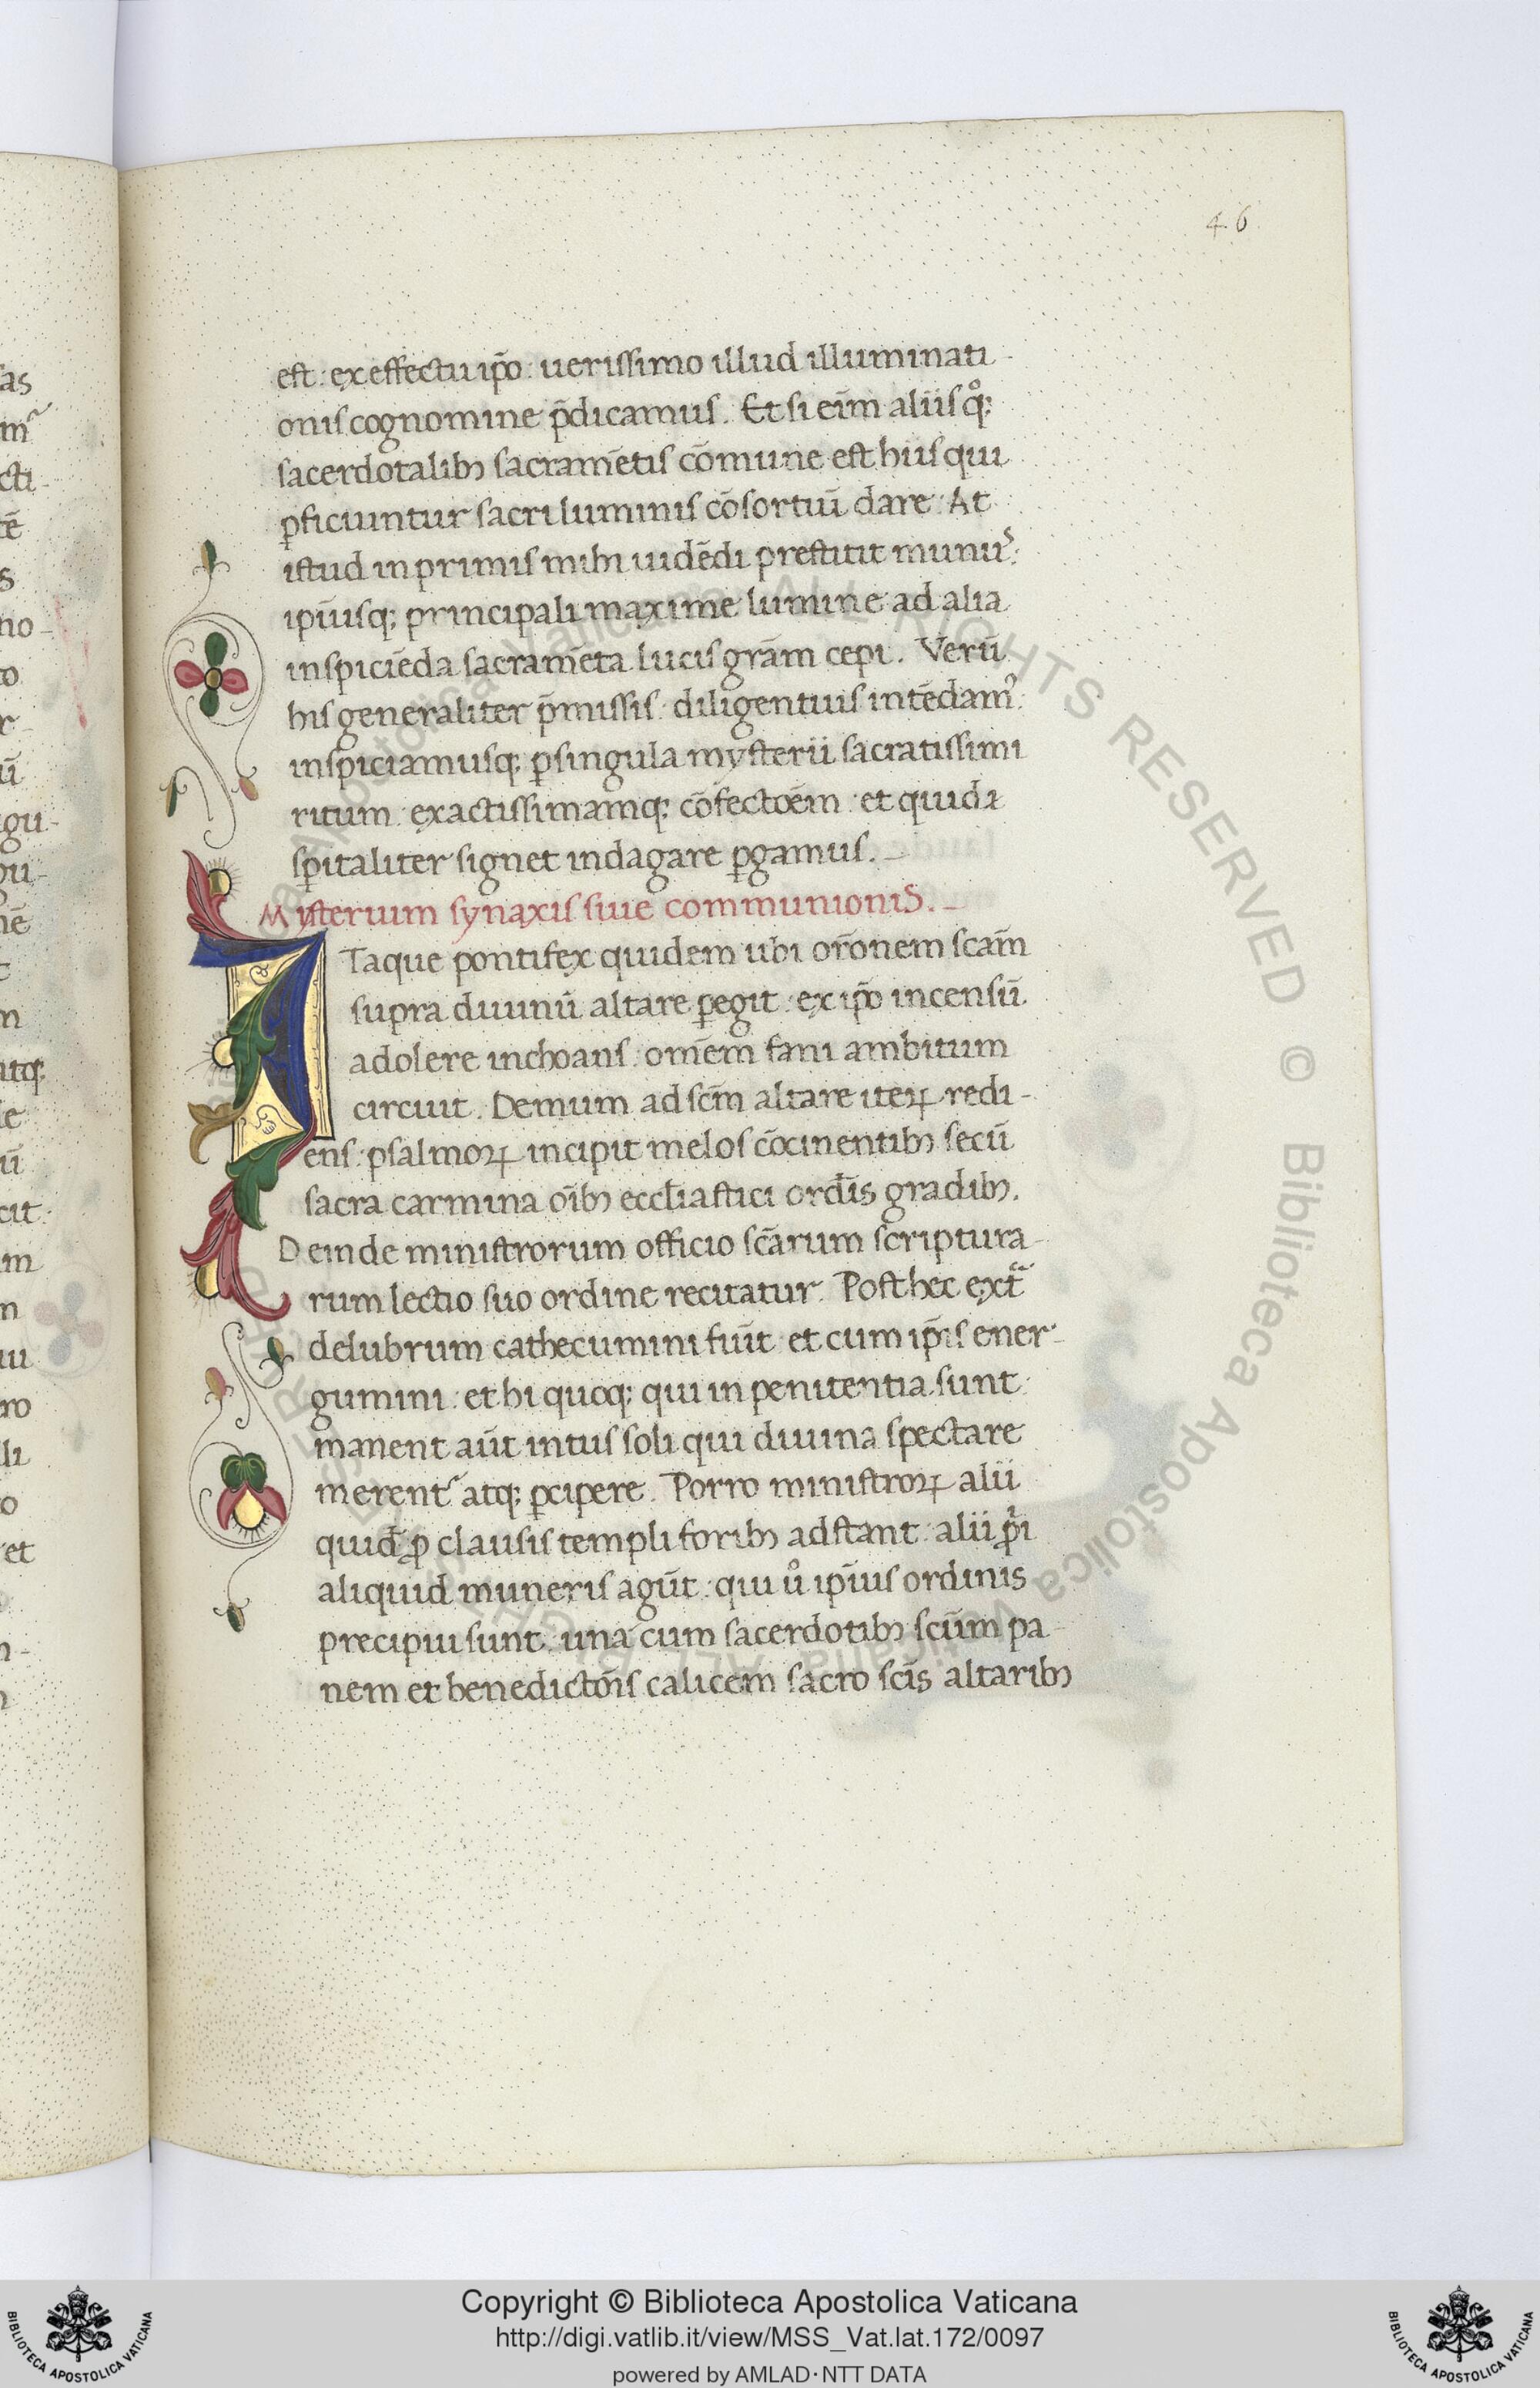 46
est: ex effectu ip̃o: uerissimo illud illuminati-
onis cognomine p̃dicamus. Et si eĩm aliis qͦꝫ
sacerdotalibꝫ sacramẽtis cõmune est hiis qui
ꝑficiuntur sacri luminis cõsortiũ dare: At
istud in primis mihi uidẽdi prestitit munuˢ:
ip̃iusqꝫ principali maxime lumine ad alia
inspiciẽda sacramẽta lucis grãm cepi. Verũ
his generaliter p̃missis: diligentius intẽdamꝰ:
inspiciamusqꝫ ꝑ singula mysterii sacratissimi
ritum: exactissimamqꝫ cõfectoẽm: et quid a
sp̃italiter signet indagare ꝑgamus. -
Mysterium synaxis siue communionis. -
ITaque pontifex quidem ubi orõnem scam̃
supra diuinũ altare ꝑegit: ex ip̃o incensũ
adolere inchoans: omẽm fani ambitum
circuit. Demum ad scm̃ altare iteꝝ redi-
ens: psalmoꝝ incipit melos cõcinentibꝫ secũ
sacra carmina oĩbꝫ eccl̃iastici ordĩs gradibꝫ.
Deinde ministrorum officio scãrum scriptura-
rum lectio suo ordine recitatur. Post hec extᷓ
delubrum cathecumini fiũt: et cum ip̃is ener-
gumini: et hi quoqꝫ qui in penitentia sunt:
manent aũt intus soli qui diuina spectare
merentᷣ atqꝫ ꝑcipere. Porro ministroꝝ alii
quid̃ ꝓ clausis templi foribꝫ adstant: alii ꝓͥi
aliquid muneris agũt: qui uͦ ip̃ius ordinis
precipui sunt: una cum sacerdotibꝫ scũm pa-
nem et benedictõis calicem sacro scĩs altaribꝫ
Copyright © Biblioteca Apostolica Vaticana
http://digi.vatlib.it/view/MSS_Vat.lat.172/0097
powered by AMLAD·NTT DATA
BIBLIOTECA APOSTOLICA VATICANA
BIBLIOTECA APOSTOLICA VATICANA